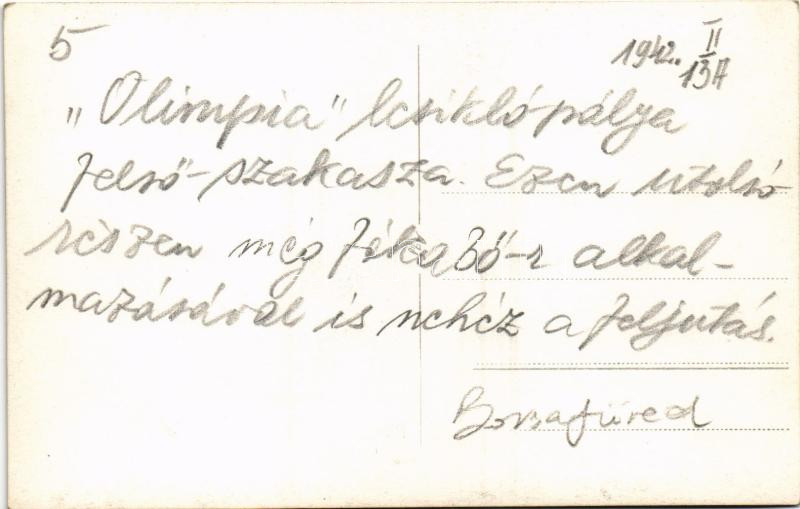 5
1942. II
13A
„Olimpia" lesiklópálya
felső-szakasza. Ezen utolsó
részen még fóka bő-r alkal-
mazásával is nehéz a feljutás.
Borsafüred